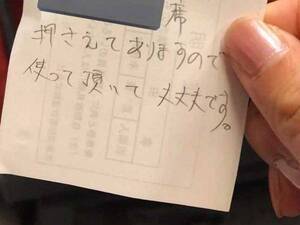 席
押さえてありますので
使って頂いて丈丈夫です。